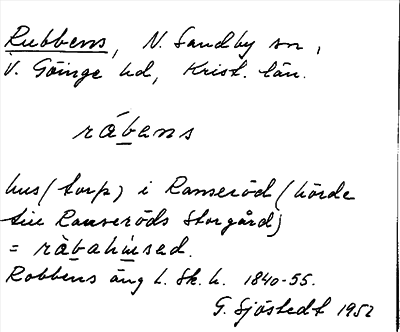 Rubbens, N. Sandby sn,
V. Göinge hd, Krist. län.
rábans
hus (torp) i Ranseröd (hörde
till Ranseröds Storgård)
= ràbahúsed.
Robbens äng L. Sk. h. 1840-55.
G. Sjöstedt 1952